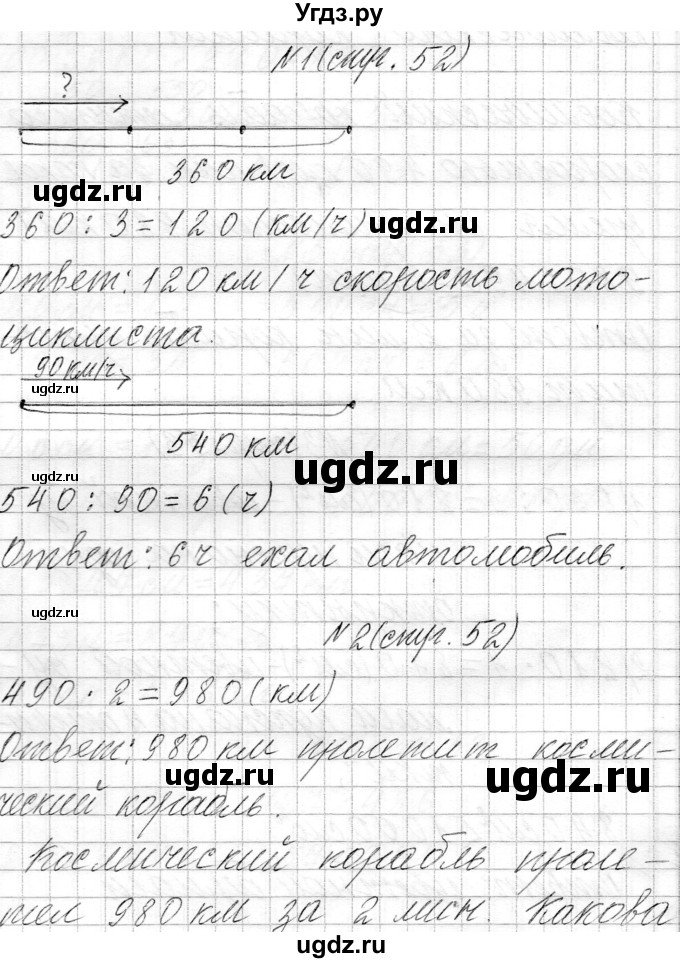 Угдз.ру
№1(стр. 52)
?
360 км
ugdz.ru
360 : 3 = 120 (км/ч)
ugdz.ru
Ответ: 120 км/ч скорость мото-
циклиста.
90 км/ч
ugdz.ru
540 км
ugdz.ru
ugdz.ru
540 : 90 = 6 (ч)
Ответ: 6 ч ехал автомобиль.
ugdz.ru
№2(стр. 52)
ugdz.ru
490 · 2 = 980 (км)
Ответ: 980 км пролетит косми-
ugdz.ru
ugdz.ru
ческий корабль.
Космический корабль проле-
тел 980 км за 2 мин. Какова
ugdz.ru